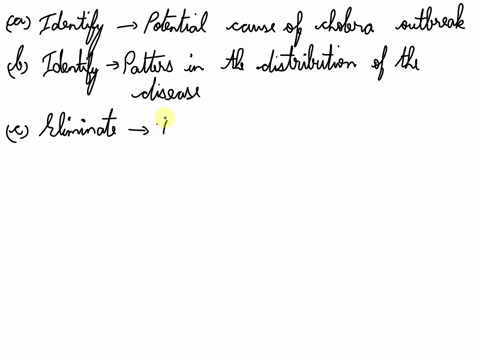 (a) Identify → Potential cause of cholera outbreak
(b) Identify → Patters in the distribution of the
disease
(c) Eliminate → i